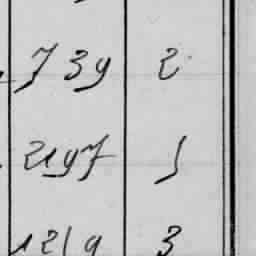 739 2
2197 1
1219 3